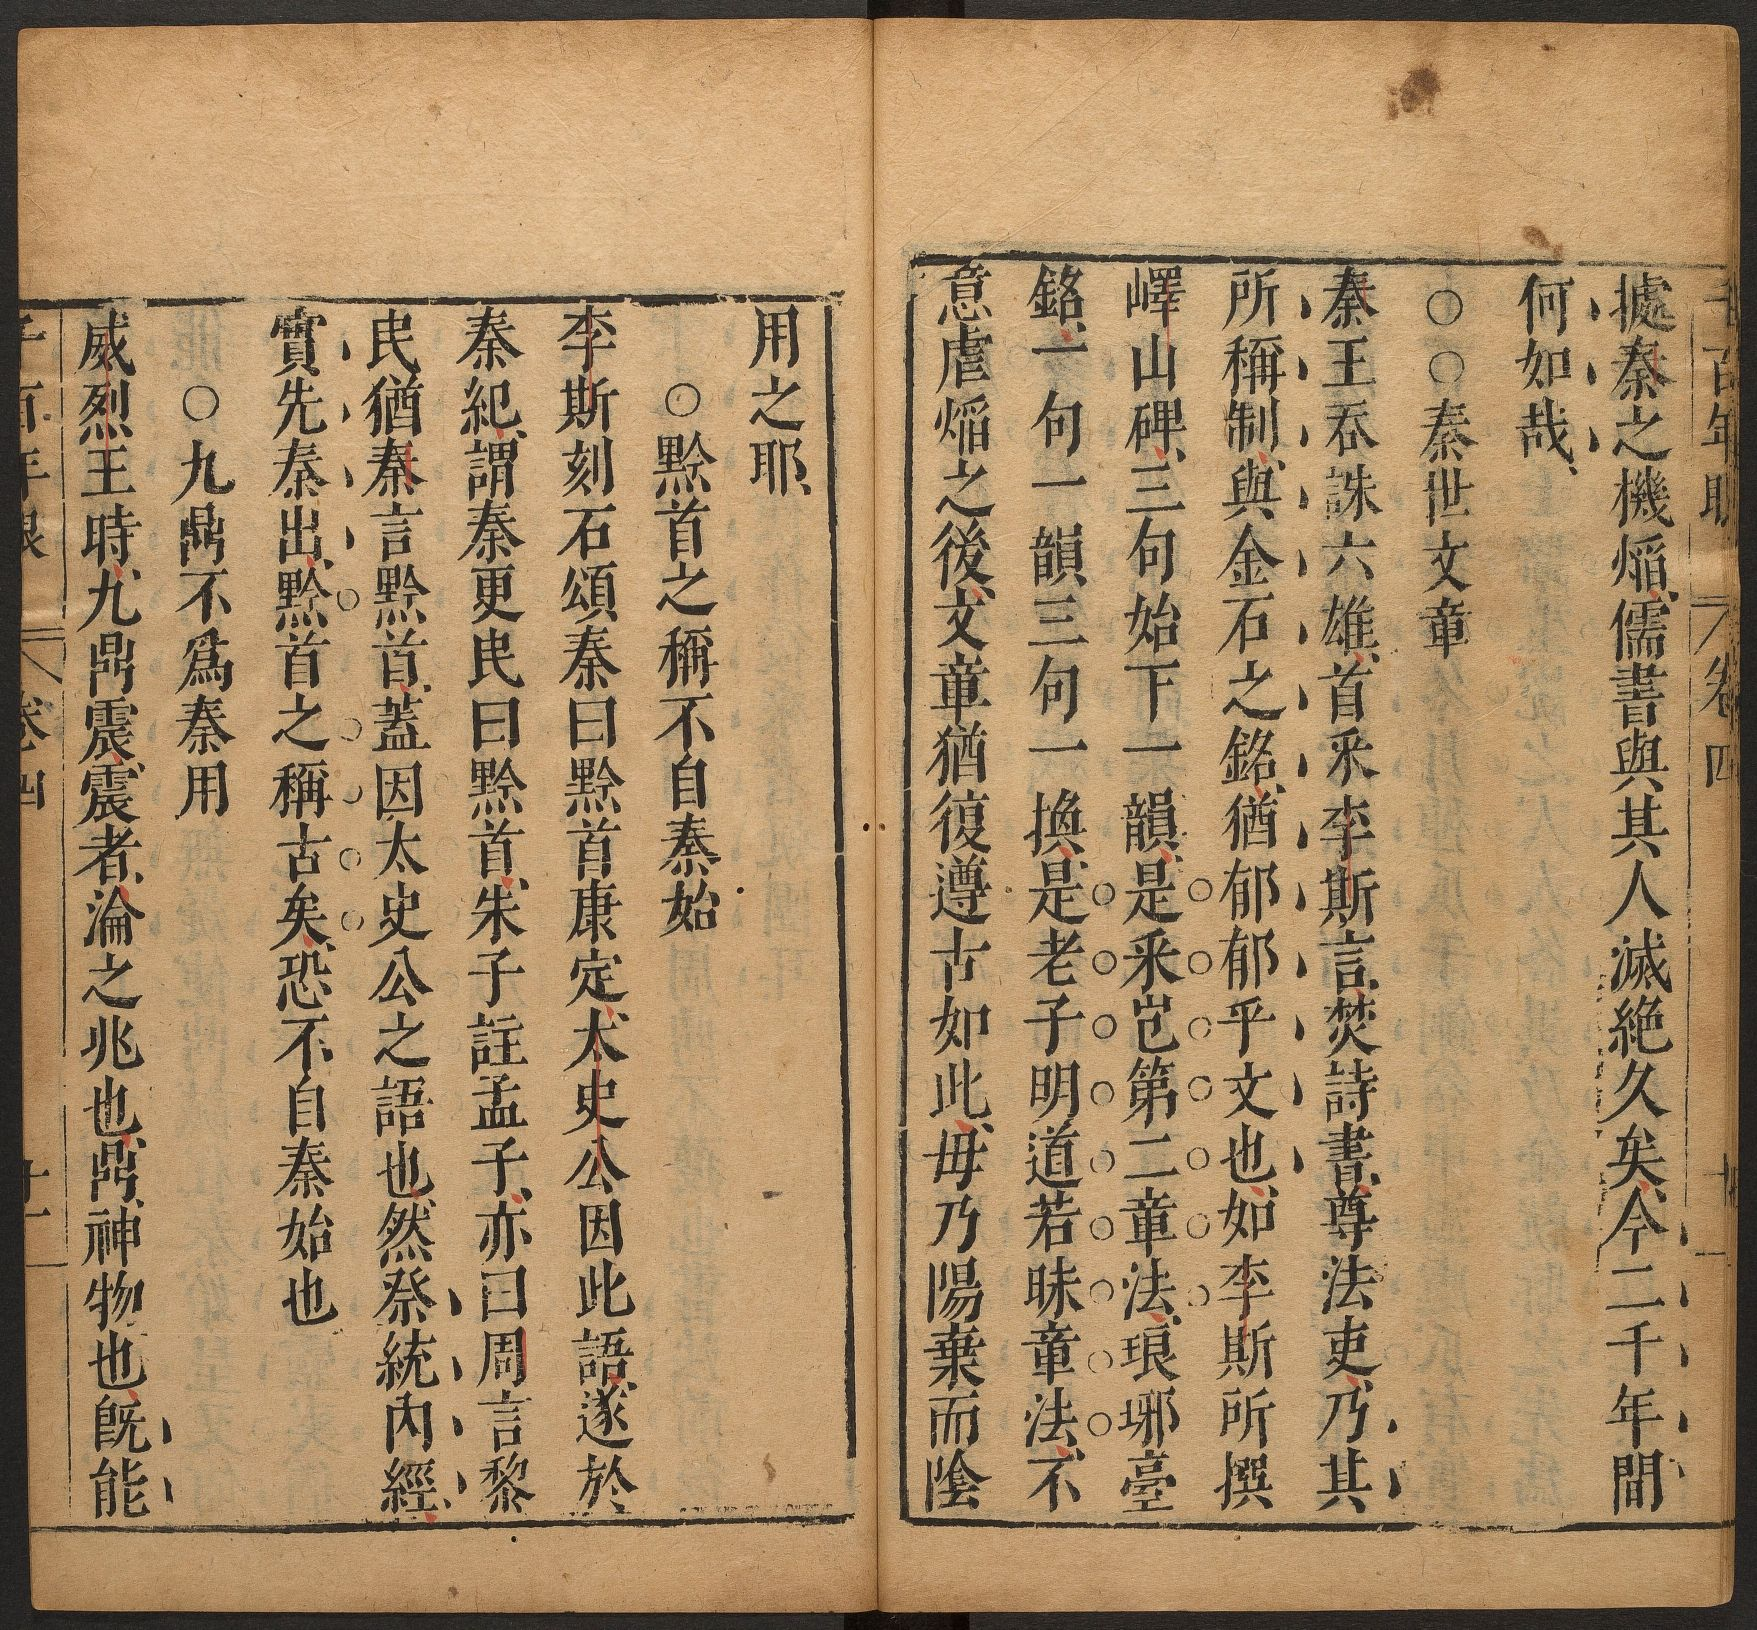 據秦之機焰儒書與其人滅絕久矣今二千年間
何如哉
○○秦世文章
秦王吞誅六雄首采李斯言焚詩書尊法吏乃其
所稱制與金石之銘猶郁郁乎文也如李斯所撰
嶧山碑三句始下一韻是采芑第二章法琅琊臺
銘一句一韻三句一換是老子明道若昧章法不
意虐焰之後文章猶復遵古如此毋乃陽棄而陰
用之耶
○黔首之稱不自秦始
李斯刻石頌秦曰黔首康定太史公因此語遂於
秦紀謂秦更民曰黔首朱子註孟子亦曰周言黎
民猶秦言黔首蓋因太史公之語也然祭統內經
實先秦出黔首之稱古矣恐不自秦始也
○九鼎不爲秦用
威烈王時九鼎震震者淪之兆也鼎神物也既能
千百年眼
卷四
十一